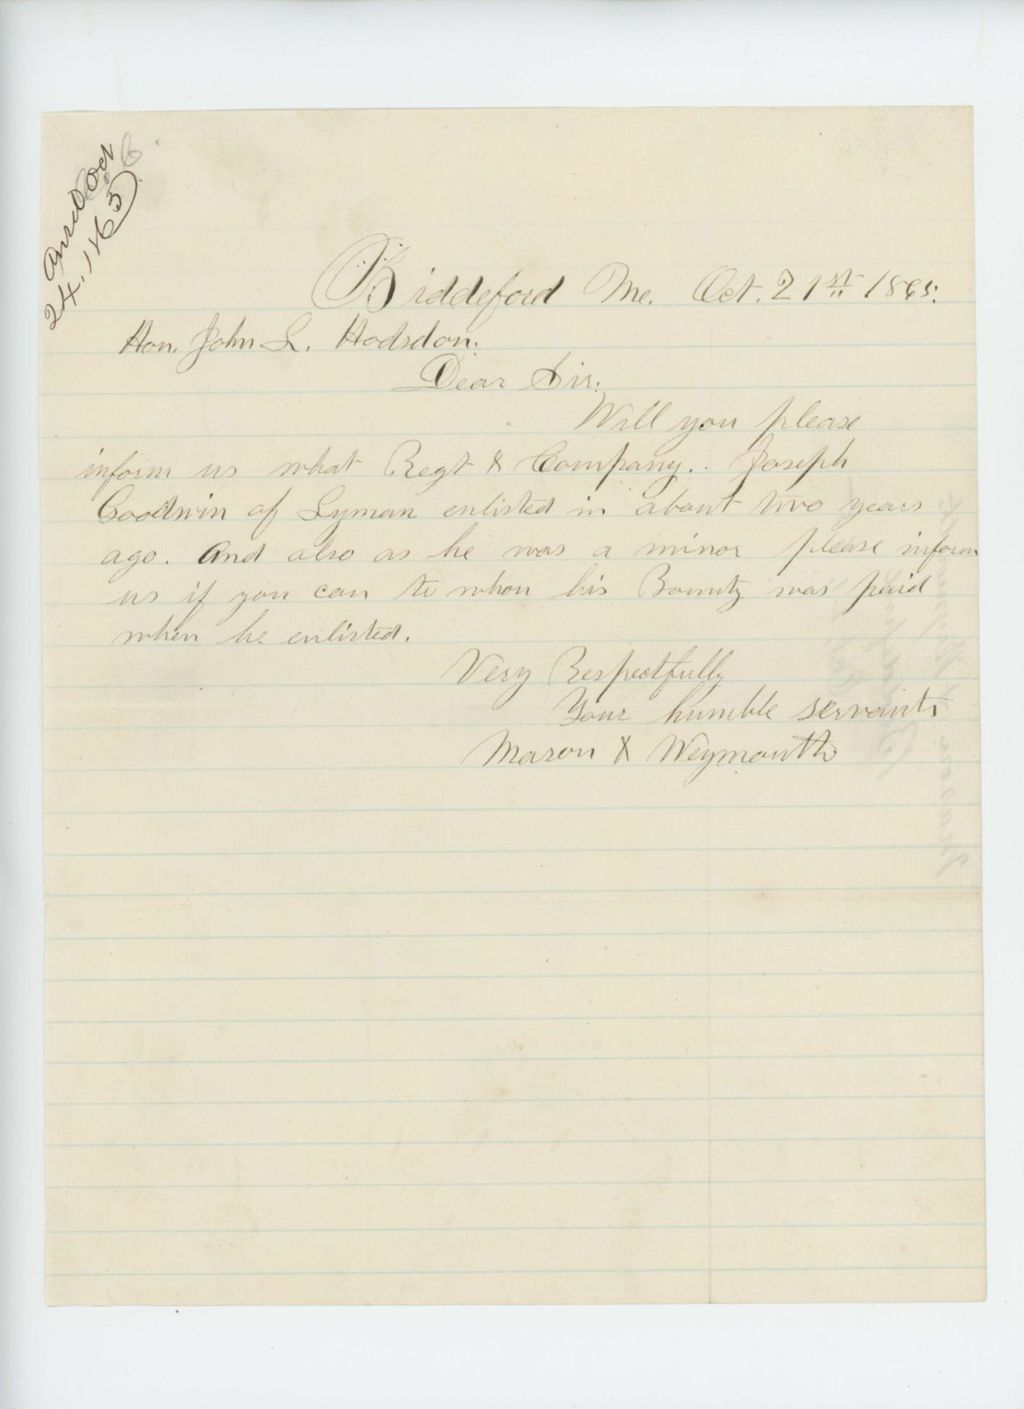 Ansd Oct
24. 1865
Biddeford Me. Oct. 21st 1865.
Hon. John L. Hodsdon.
Dear Sir:
Will you please
inform us what Regt & Company. Joseph
Goodwin of Lyman enlisted in about two years
ago. And also as he was a minor please inform
us if you can to whom his Bounty was paid
when he enlisted.
Very Respectfully
Your humble servants
Mason & Weymouth